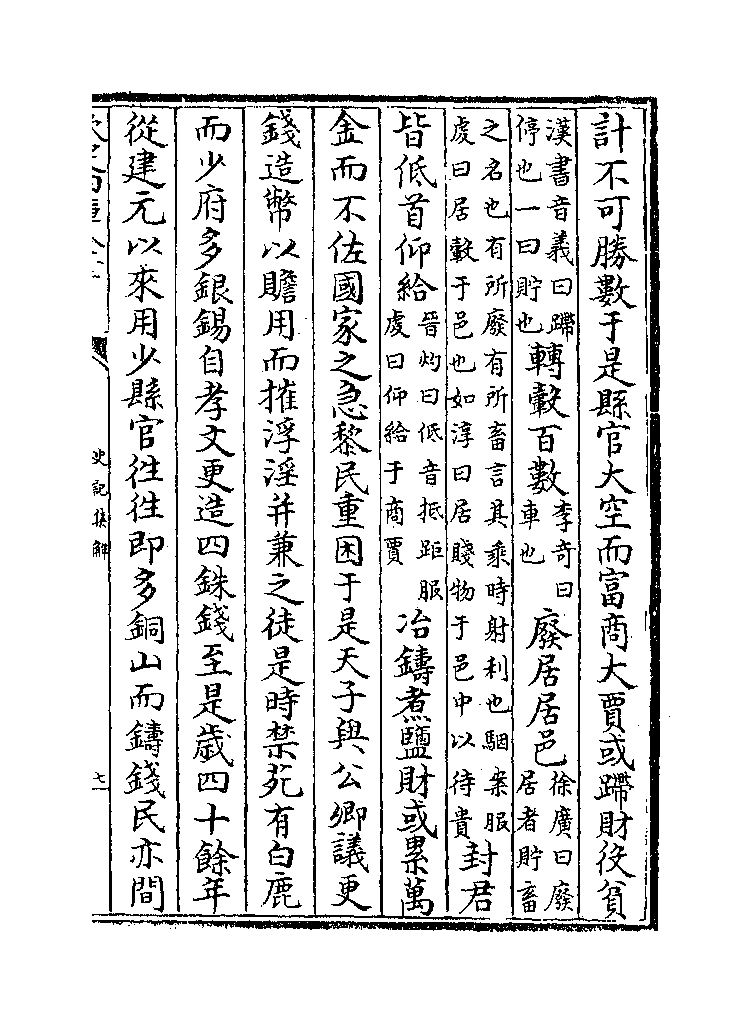 計不可勝數于是縣官大空而富商大賈或蹛財役貧
漢書音義曰蹛停也一曰貯也轉轂百數李奇曰車也廢居居邑徐廣曰廢居者貯畜
之名也有所廢有所畜言其乘時射利也駰案服虔曰居穀于邑也如淳曰居賤物于邑中以待貴封君
皆低首仰給晉灼曰低音抵距服虔曰仰給于商賈冶鑄煮鹽財或累萬
金而不佐國家之急黎民重困于是天子與公卿議更
錢造幣以贍用而摧浮淫并兼之徒是時禁苑有白鹿
而少府多銀錫自孝文更造四銖錢至是歲四十餘年
從建元以來用少縣官往往即多銅山而鑄錢民亦間
史記集解